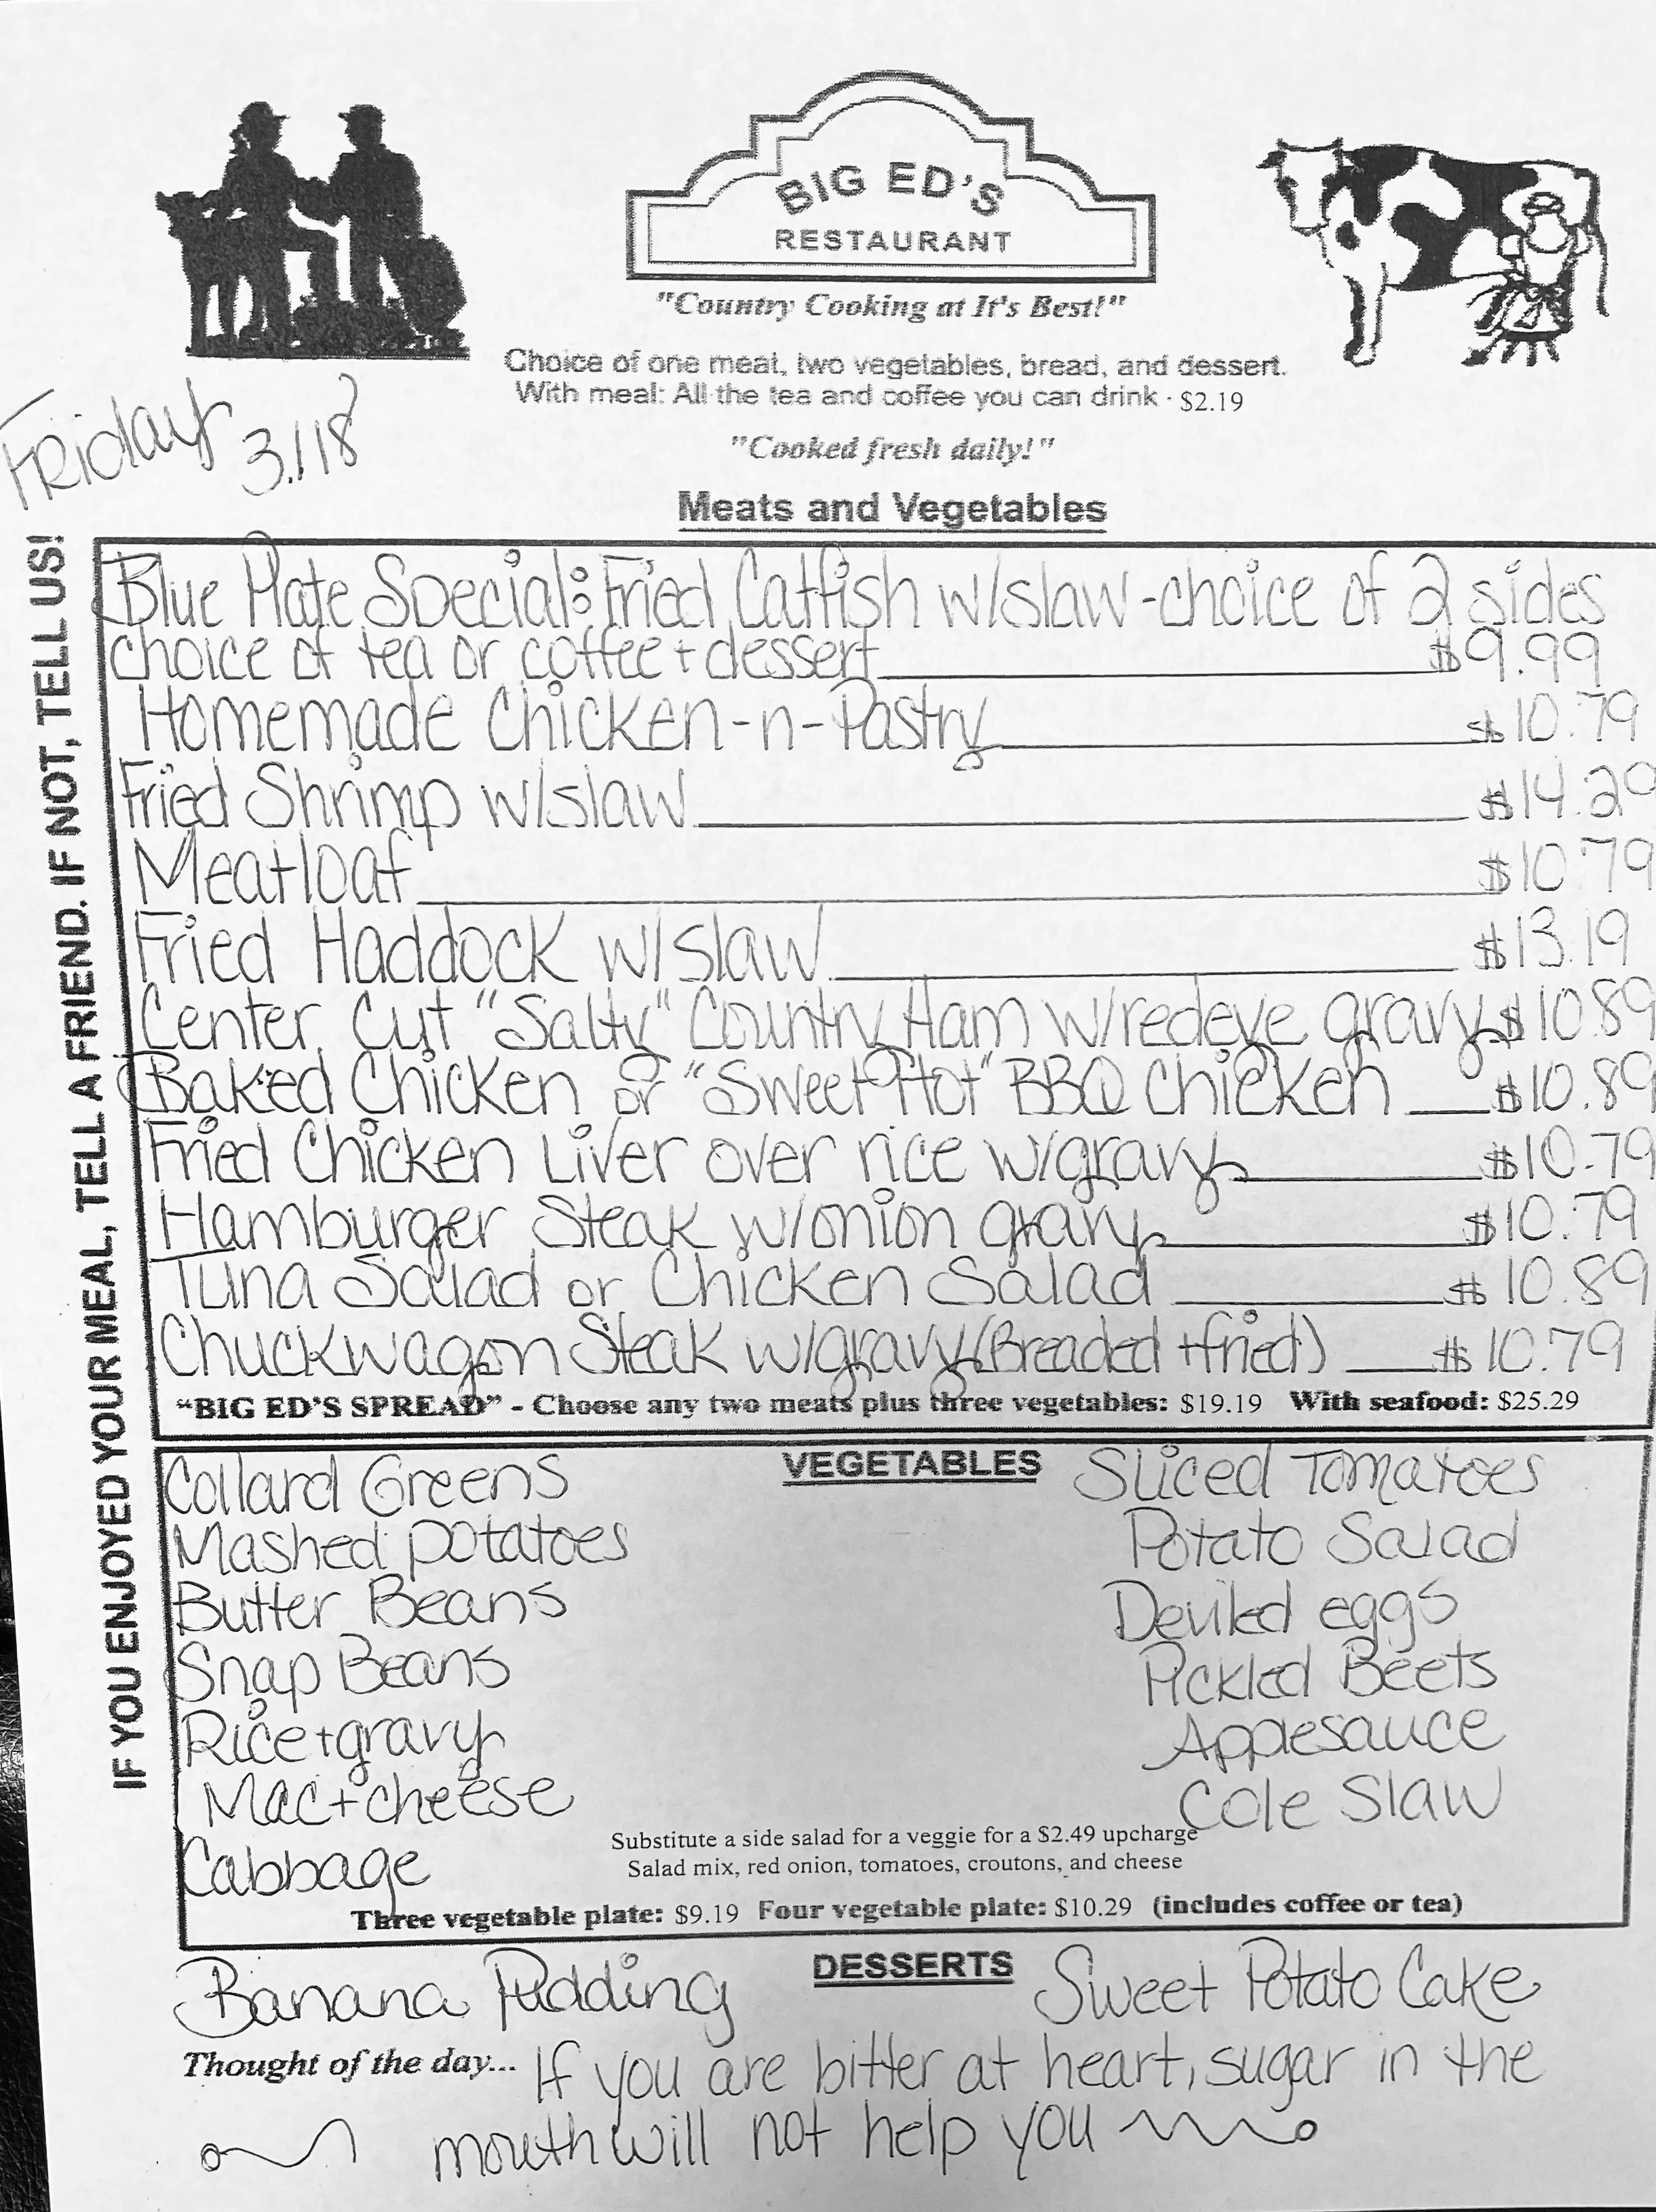 BIG ED'S
RESTAURANT
"Country Cooking at It's Best!"
Choice of one meat, two vegetables, bread, and dessert.
With meal: All the tea and coffee you can drink · $2.19
"Cooked fresh daily!"
Friday 3/18
Meats and Vegetables
IF YOU ENJOYED YOUR MEAL, TELL A FRIEND. IF NOT, TELL US!
Blue Plate Special: Fried Catfish w/slaw-choice of 2 sides
choice of tea or coffee + dessert $9.99
Homemade Chicken-n-Pastry $10.79
Fried Shrimp w/slaw $14.29
Meatloaf $10.79
Fried Haddock w/slaw $13.19
Center Cut "Salty" Country Ham w/redeye gravy $10.89
Baked Chicken or "Sweet Hot" BBQ Chicken $10.89
Fried Chicken Liver over rice w/gravy $10.79
Hamburger Steak w/onion gravy $10.79
Tuna Salad or Chicken Salad $10.89
Chuckwagon Steak w/gravy (Breaded + fried) $10.79
"BIG ED'S SPREAD" - Choose any two meats plus three vegetables: $19.19 With seafood: $25.29
VEGETABLES
Collard Greens
Mashed potatoes
Butter Beans
Snap Beans
Rice + gravy
Mac + cheese
Cabbage
Sliced Tomatoes
Potato Salad
Deviled eggs
Pickled Beets
Applesauce
Cole Slaw
Substitute a side salad for a veggie for a $2.49 upcharge
Salad mix, red onion, tomatoes, croutons, and cheese
Three vegetable plate: $9.19 Four vegetable plate: $10.29 (includes coffee or tea)
DESSERTS
Banana Pudding
Sweet Potato Cake
Thought of the day... If you are bitter at heart, sugar in the
mouth will not help you